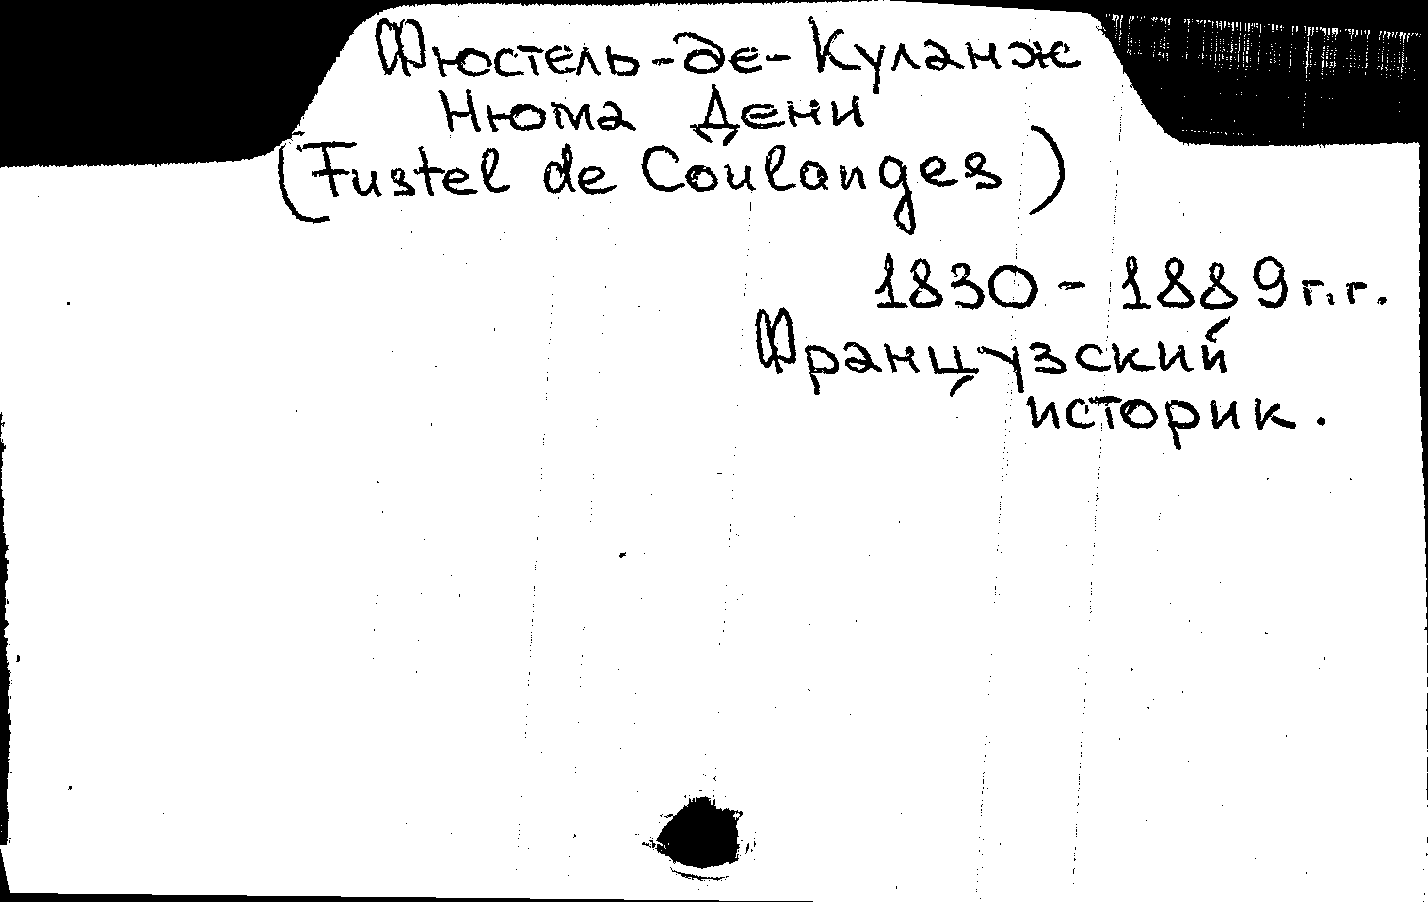 Фюстель-де-Куланж
Нюма Дени
(Fustel de Coulanges)
1830 - 1889 г.г.
Французский
историк.